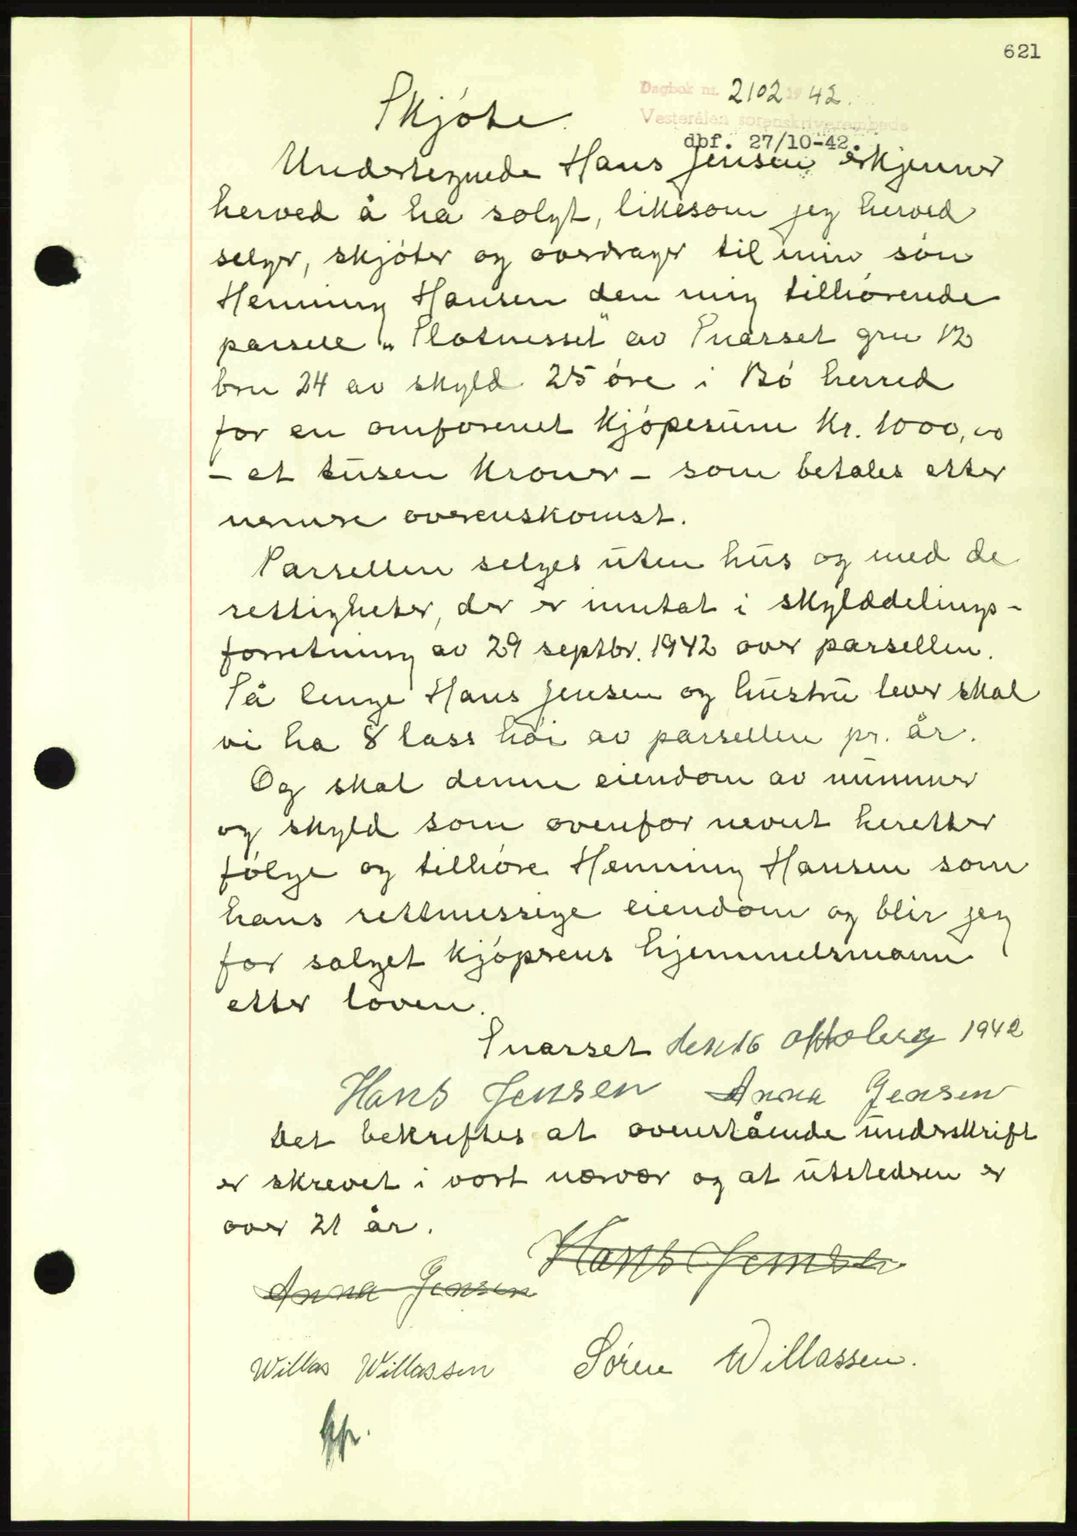 621
Skjóte.
Dagbok nr. 2102 19 42.
Vesterålen sorenskriverembede
dbf. 27/10-42.
Undertegnede Hans Jensen erkjenner
herved å ha solgt, likesom jeg herved
selger, skjóter og overdrager til min són
Henning Hansen den mig tilhórende
parsell "Flatnesset" av Snarset gnr 12
bnr 24 av skyld 25 óre i Bó herred
for en omforenet kjópesum Kr. 1000,00
- et tusen Kroner - som betales etter
nermere overenskomst.
Parsellen selges uten hus og med de
rettigheter, der er inntat i skylddelings-
forretning av 29 septbr. 1942 over parsellen.
Så lenge Hans Jensen og hustru lever skal
vi ha 8 lass hói av parsellen pr. år.
Og skal denne eiendom av nummer
og skyld som ovenfor nevnt heretter
fólge og tilhóre Henning Hansen som
hans rettmessige eiendom og blir jeg
for salget kjóperens hjemmelsmann
etter loven.
Snarset den 16 oktober 1942
Hans Jensen Anna Jensen
Det bekreftes at ovenstående underskrift
er skrevet i vort nærvær og at utstederen er
over 21 år.
Hans Jensen
Anna Jensen
Willas Willassen Sóren Willassen.